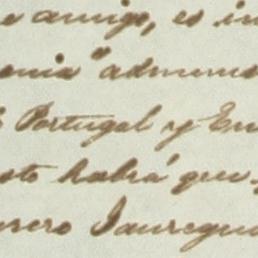 e amigo, es in
onia" adminis
Portugal y En
sto habrá que
rero Jauregui